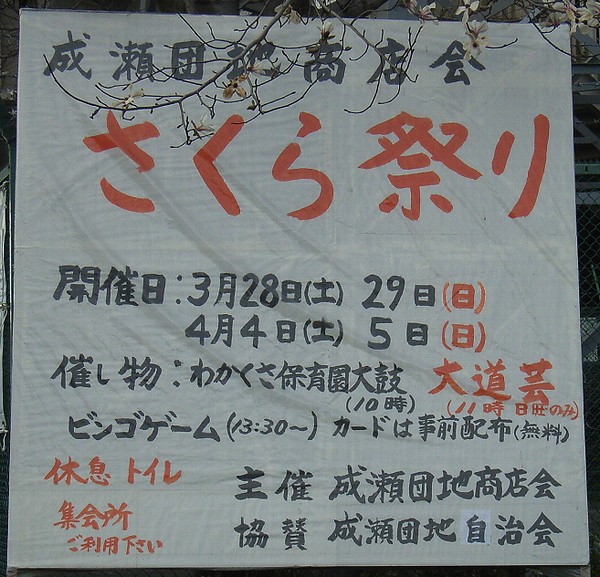 成瀬団地商店会
さくら祭り
開催日：3月28日(土) 29日(日)
4月4日(土) 5日(日)
催し物：わかくさ保育園大鼓 大道芸
(10時) (11時 日曜のみ)
ビンゴゲーム(13:30〜) カードは事前配布(無料)
休息 トイレ
集会所
ご利用下さい
主催 成瀬団地商店会
協賛 成瀬団地自治会